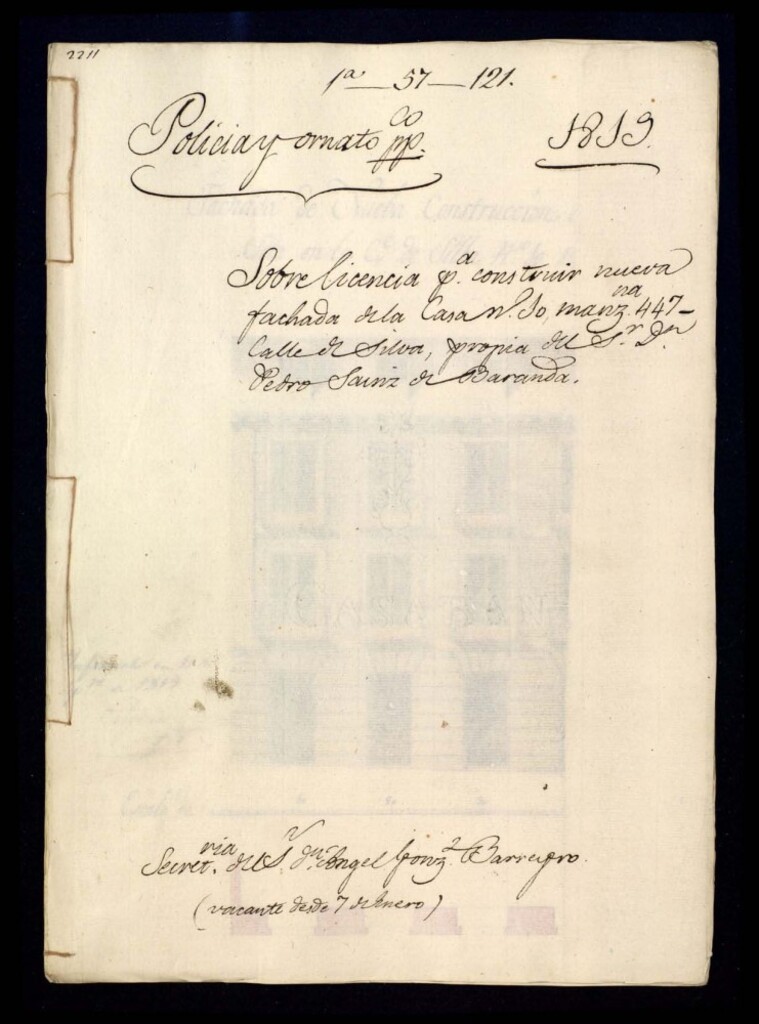 2211
1ª — 57 — 121.
Policia y ornato pp.co 1819.
Sobre licencia p.a construir nueva
fachada de la Casa n.o 30, manz.na 447-
Calle de Silva, propia del S.r D.n
Pedro Sainz de Baranda.
Secret.ria del S.r dn. Angel Gonz.z Barreyro.
(vacante desde 7 de Enero)